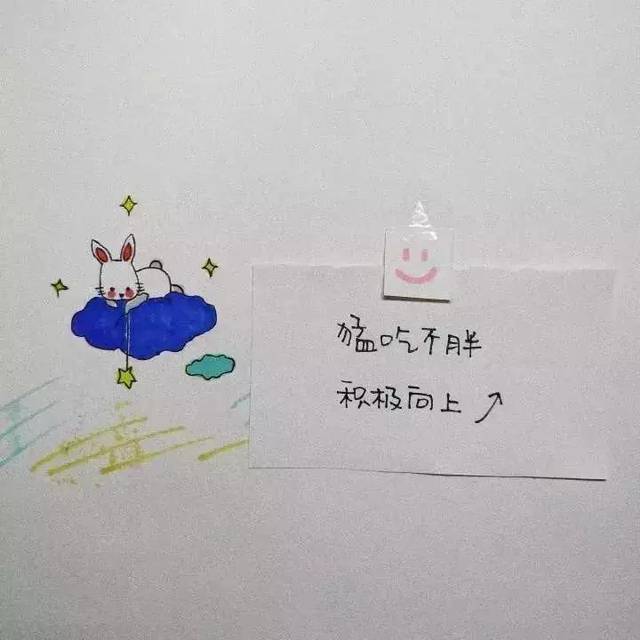 猛吃不胖
积极向上↗